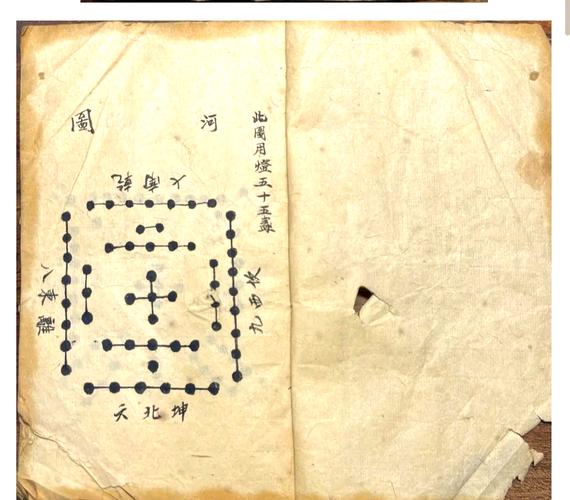 此圖用燈五十五盞
河圖
南乾
九西坎
八東離
北坤